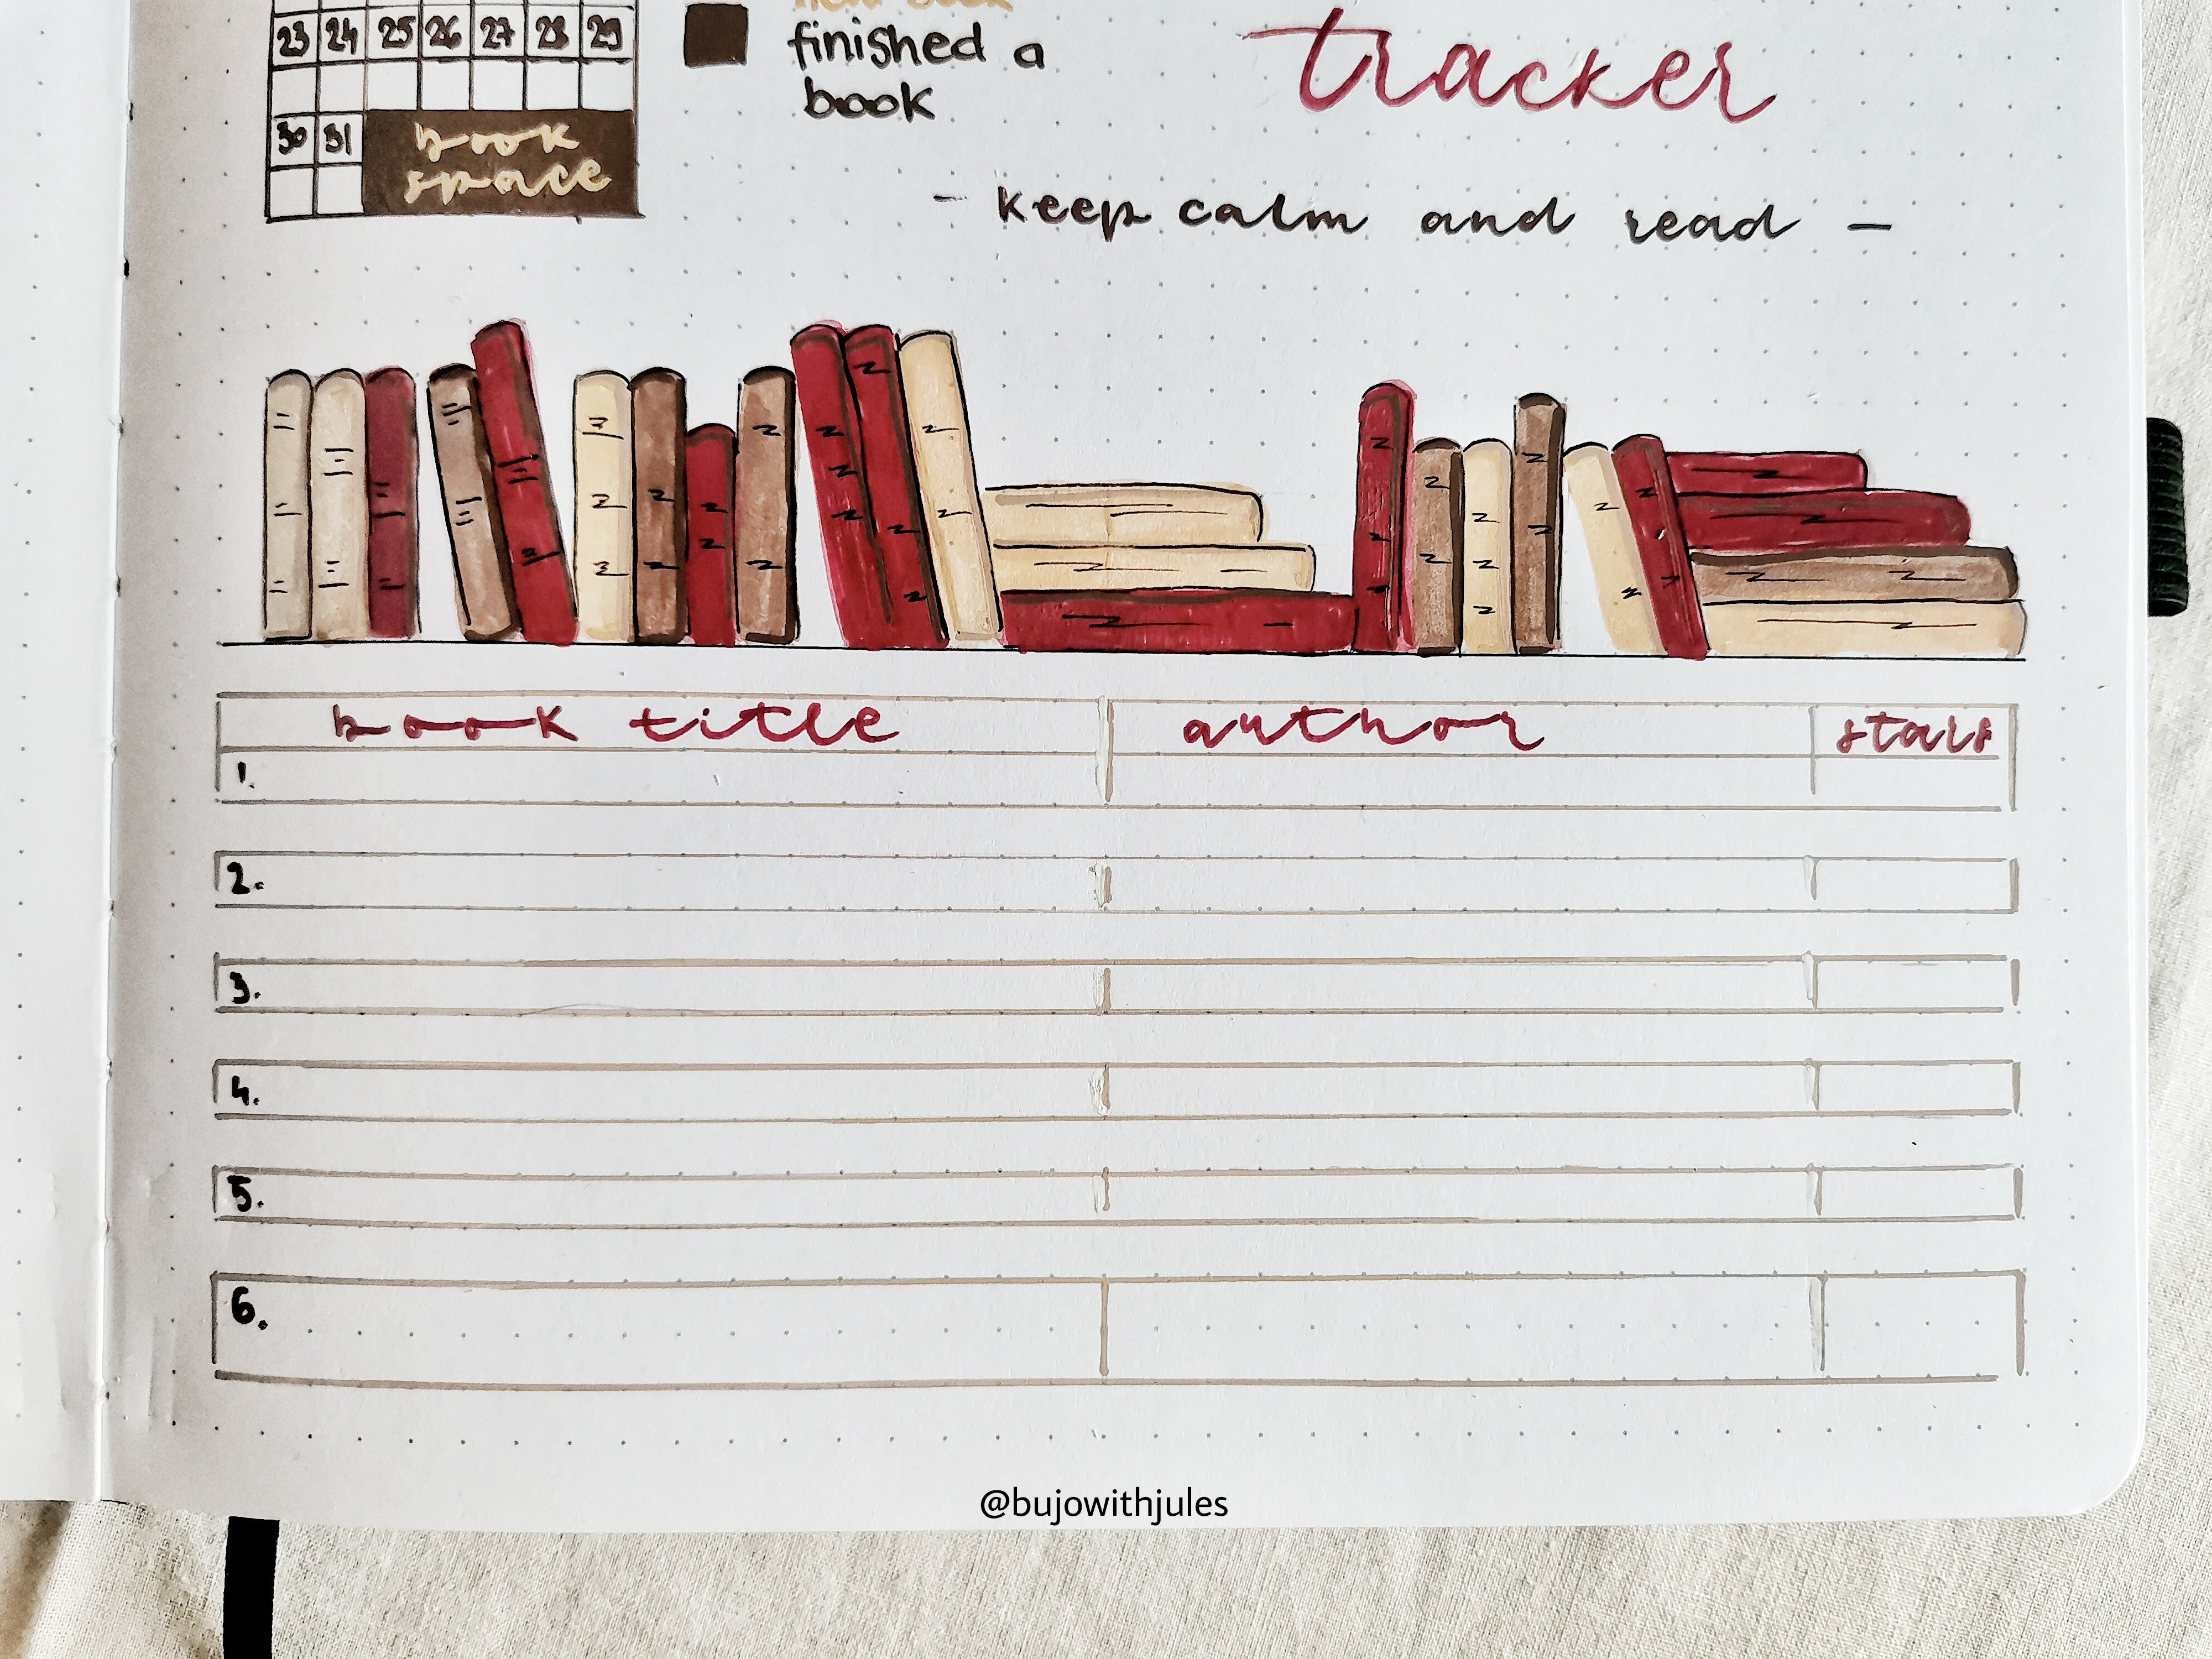 23 24 25 26 27 28 29
30 31
book
space
finished a
book
tracker
- keep calm and read -
book title author stars
1.
2.
3.
4.
5.
6.
@bujowithjules